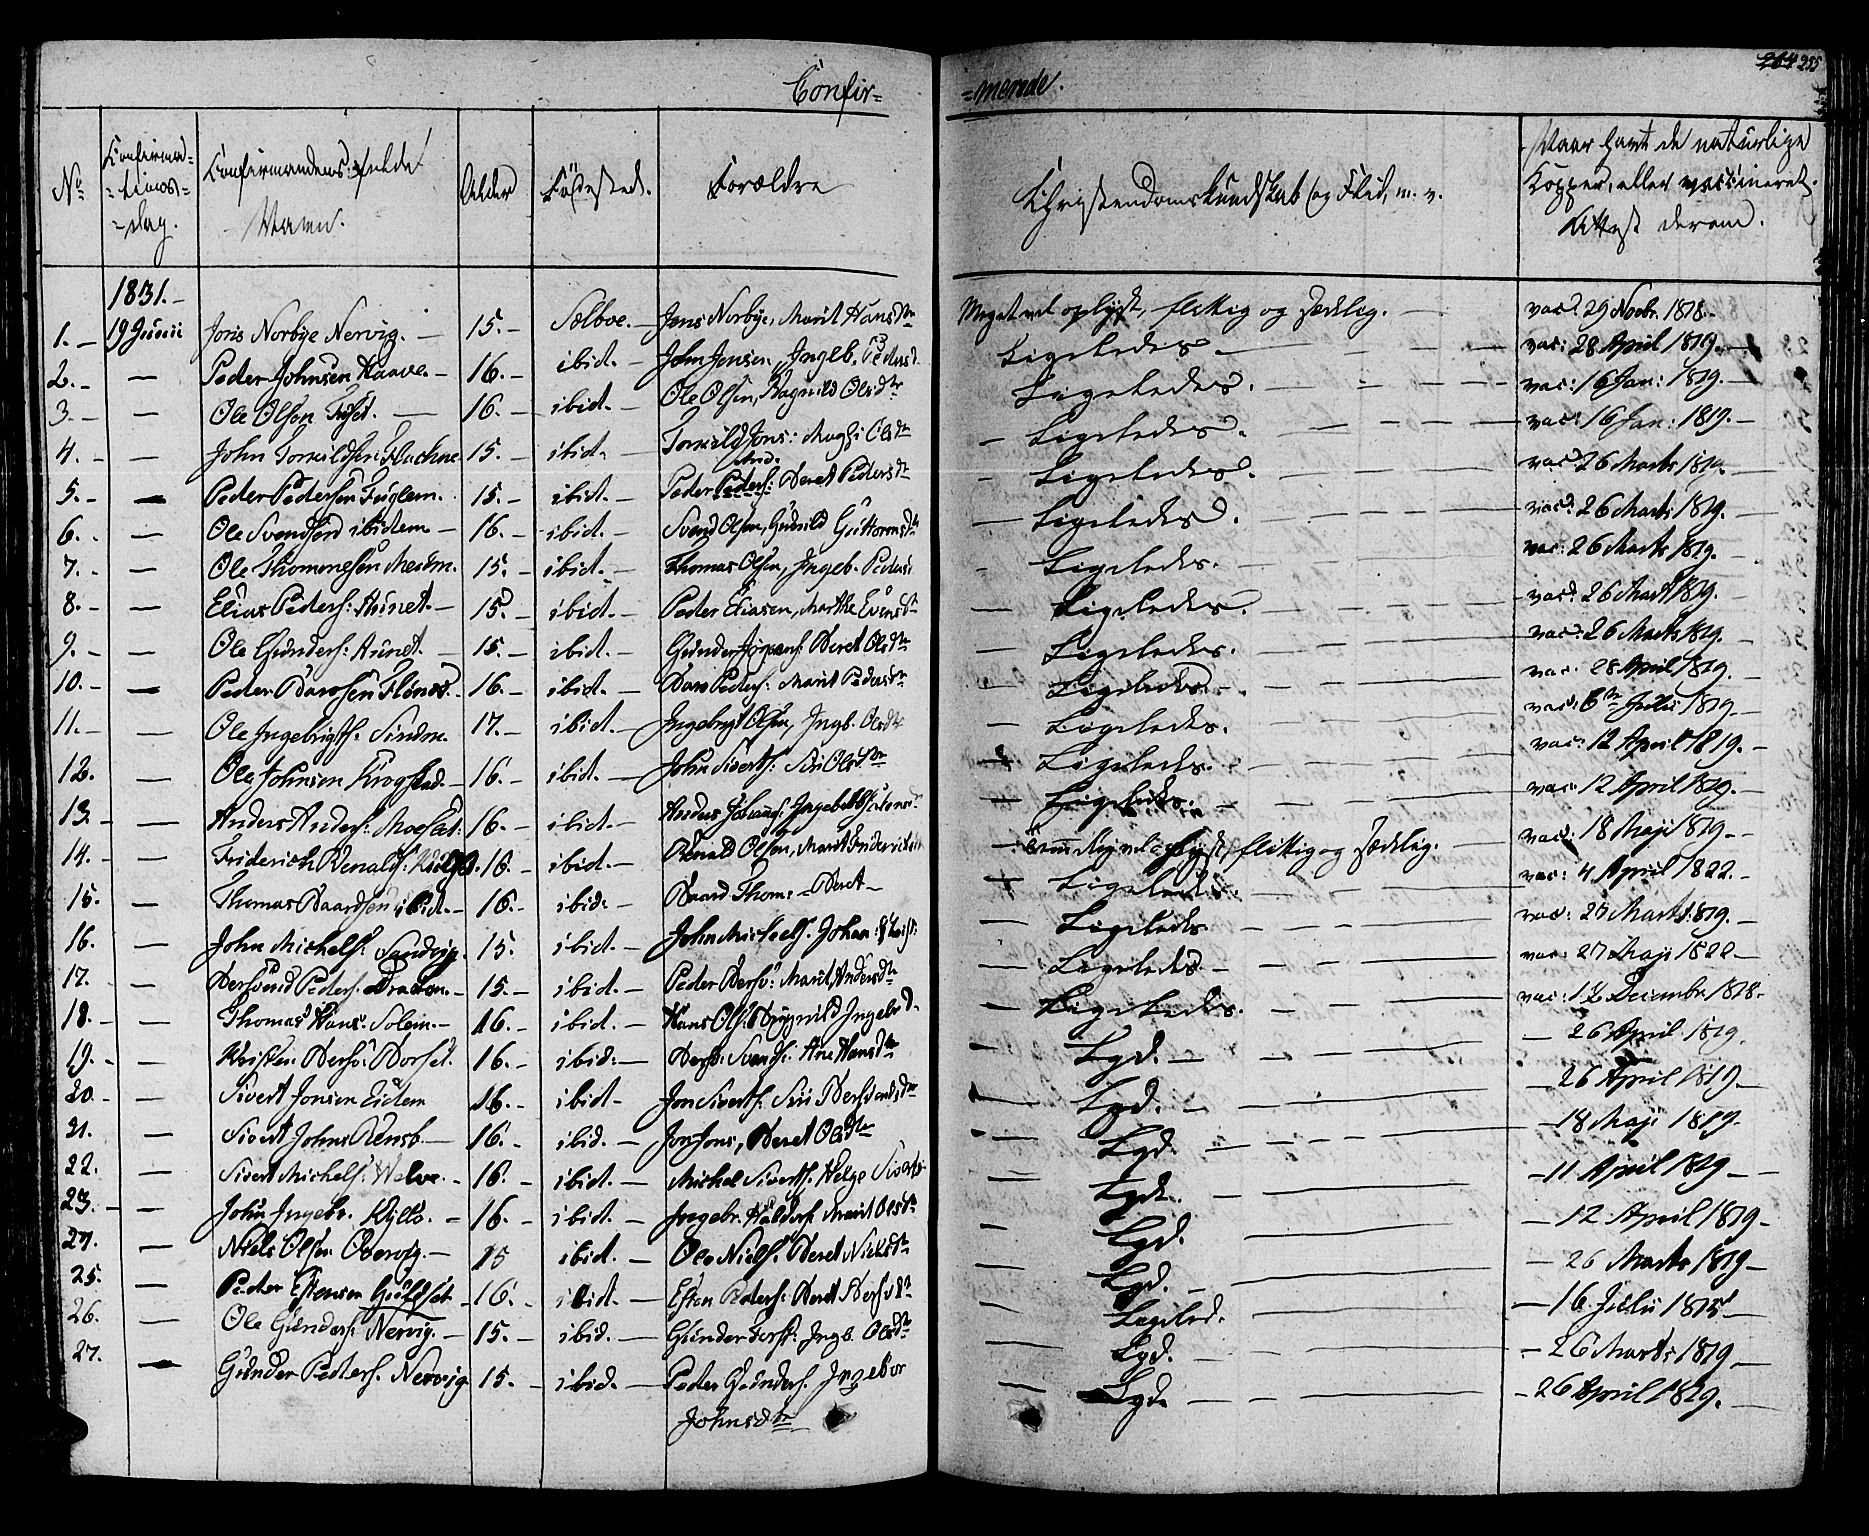 Confir=
=merede.
264 255
No
Confirma=
=tions=
=dag.
Confirmandens fulde
Navn.
Alder
Fødested.
Forældre
Christendomskundskab og Flid, m. v.
Naar havt de naturlige
Kopper, eller vaccineret.
Attest derom.
1831.
1. 19 Junii Jens Norbye Nervig. 15. Sælboe. Jens Norbye, Marit Hansdtr Meget vel oplyst, flittig og sædelig. vac: 29 Novbr. 1818.
2. Peder Johnsen Haave. 16. ibid. John Jonsen, Ingeb. Pedersd. Ligeledes vac: 28 April 1819.
3. Ole Olsen 16. ibid. Ole Olsen, Ragnild Olsdtr Ligeledes. vac: 16 Jan: 1819.
4. John Torkildsen Flackne 15. ibid. Torkild Jons: Olsdtr Ligeledes. vac: 16 Jan: 1819.
5. Peder Pedersen Fuglem. 15. ibid. Peder And. Peders: Beret Pedersdtr Ligeledes. vac: 26 Marts 1819.
6. Ole Svendsen ibidem 16. ibid. Svend Olsen, Gunild Guttormsdtr Ligeledes. vac: 26 Marts 1819.
7. Ole Thomassen 15. ibid. Thomas Olsen, Ingeb. Peders: Ligeledes. vac: 26 Marts 1819.
8. Elias Peders: Hünet. 15. ibid. Peder Eliasen, Marthe Evensdtr Ligeledes. vac: 26 Marts 1819.
9. Ole Gunders: Hünet. 15. ibid. Gunder Beret Olsdtr Ligeledes. vac: 26 Marts 1819.
10. Peder Baarsen Flönes. 16. ibid. Baar Peders: Marit Pedersdtr Ligeledes. vac: 28 April 1819.
11. Ole Ingebrigts. 17. ibid. Ingebrigt Olsen, Ingb. Olsdtr Ligeledes. vac: 6te Julii 1819.
12. Ole Johnsen Krogstad. 16. ibid. John Siverts: Siri Olsdtr Ligeledes. vac: 12 April 1819.
13. Anders Anders: Moeslet: 16. ibid. Anders Ingebor Ligeledes. vac: 12 April 1819.
14. Friderich Renalds: 16. ibid. Renald Olsen, Marit Friderichsdtr Temmelig vel oplyst, flittig og sædelig. vac: 18 Maji 1819.
15. Thomas Baardsen ibid. 16. ibid. Baard Thom: Beret Ligeledes. vac: 4 April 1822.
16. John Michels: Sandvig. 15. ibid. John Michels. Johan: Ligeledes vac: 27 Marts 1819.
17. Bersvend Peders: 15. ibid. Peder Bersv: Marit Andersdtr Ligeledes vac: 27 Maji 1820
18. Thomas Hans: Solem. 16. ibid. Hans Ols: Ingebr Ligeledes. vac: 17 Decembr. 1818.
19. Bersv: Borset. 16. ibid: Bersv: Svends: Ane Hansdtr Lgd. 26 April 1819.
20. Sivert Jonsen Eidem 16. ibid. Jon Siverts: Siri Bersvendsdtr Lgd. 26 April 1819
21. Sivert Johns Rensb. 16. ibid. Jon Jons, Beret Olsdtr Lgd. 18 Maji 1819.
22. Sivert Michels: Helve. 16. ibid. Michel Siverts. Helge Siverts Lgd. 11 April 1819
23. John Ingebr. Kyllo. 16. ibid. Ingebr. Haldors. Marit Olsdtr Lgd. 12 April 1819
24. Niels Olsen Overvig. 15 ibid. Ole Niels. Beret Nielsdtr Lgd. 26 Marts 1819
25. Peder Estensen Guldset 16. ibid. Esten Peders: Beret Bersvdtr Ligeled. 16 Julii 1815
26. Ole Gunders: Nervig. 15. ibid. Gunder Ingb. Olsdtr Lgd. 26 Marts 1819
27. Gunder Peders. Nervig 15. ibid. Peder Gunders. Ingebor Lgd. 26 April 1819.
Johnsdtr